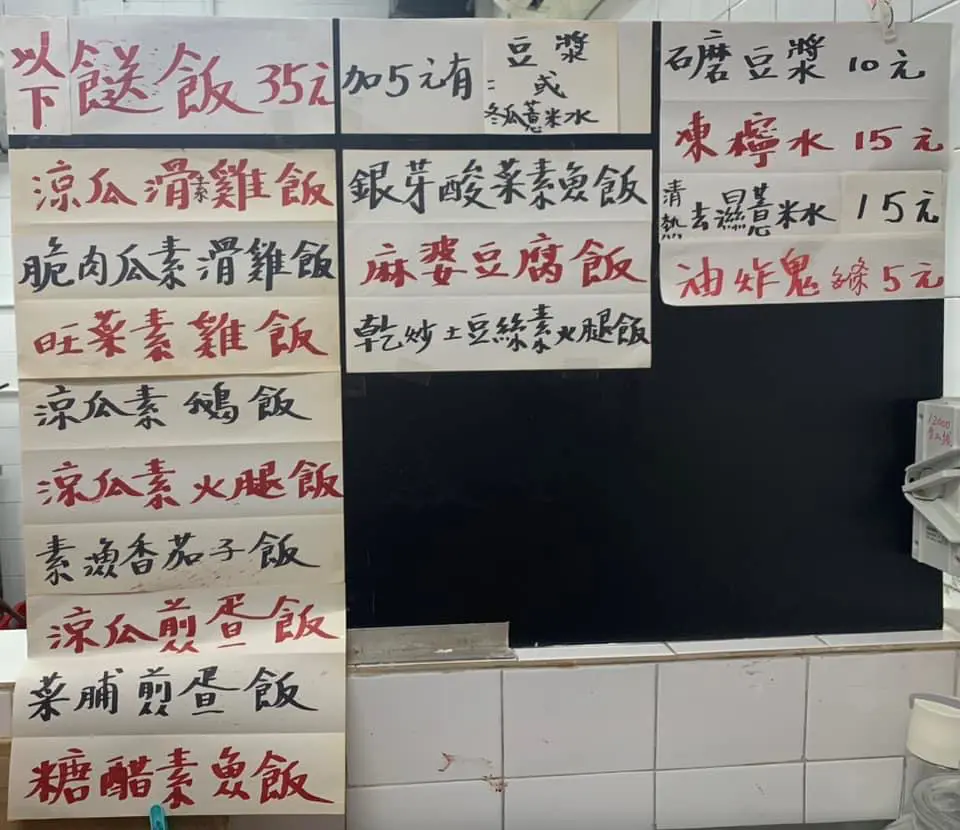 以下餸飯35元
涼瓜滑素雞飯
脆肉瓜素滑雞飯
旺菜素雞飯
涼瓜素鵝飯
涼瓜素火腿飯
素漁香茄子飯
涼瓜煎蛋飯
菜脯煎蛋飯
糖醋素魚飯
加5元有
豆漿
或
冬瓜薏米水
銀芽酸菜素魚飯
麻婆豆腐飯
乾炒土豆絲素火腿飯
石磨豆漿 10元
凍檸水 15元
清熱去濕薏米水 15元
油炸鬼 5元